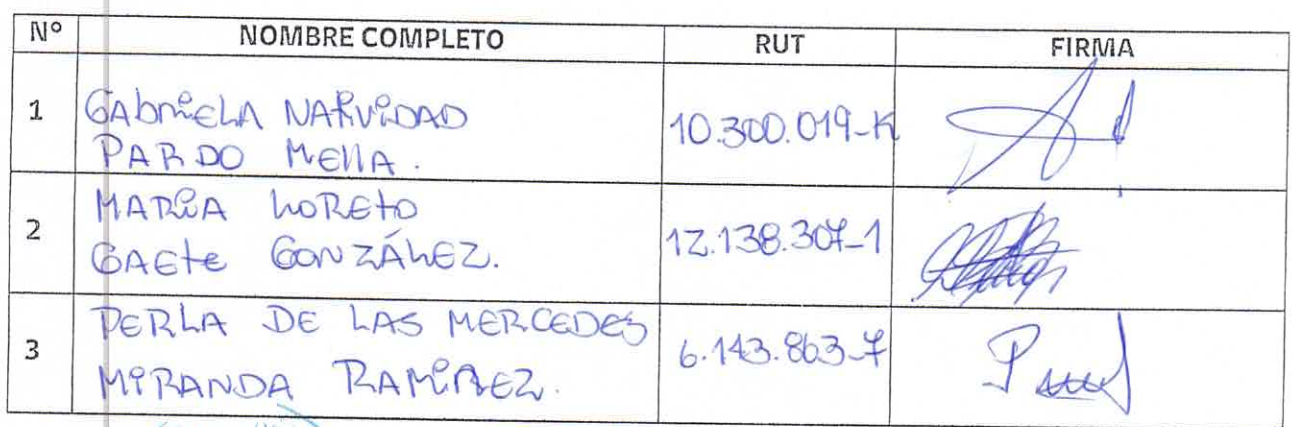 Nº NOMBRE COMPLETO RUT FIRMA
1 GABRIELA NATIVIDAD
PARDO MELLA. 10.300.019-K
2 MARIA LORETO
GAETE GONZÁLEZ. 12.138.307-1
3 PERLA DE LAS MERCEDES
MIRANDA RAMIREZ. 6.143.863-7